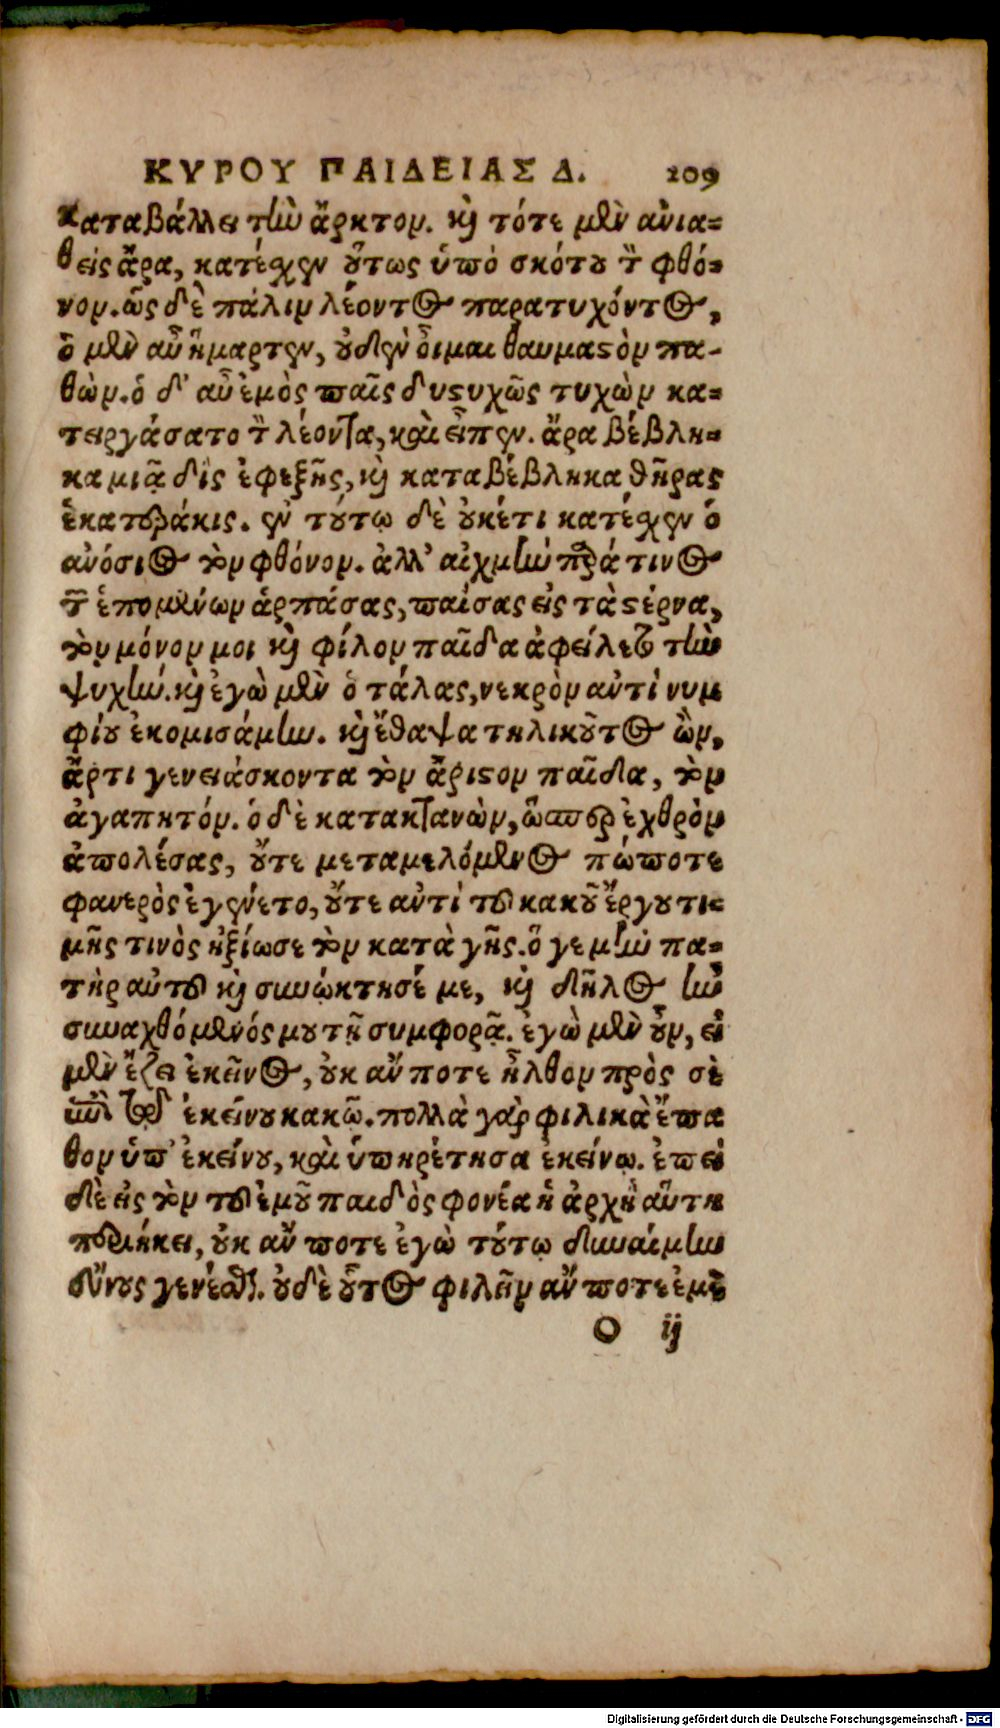 ΚΥΡΟΥ ΠΑΙΔΕΙΑΣ Δ. 209
καταβάλλει τὴν ἄρκτον. καὶ τότε μὲν ἀνια-
θεὶς ἄρα, κατέσχεν οὕτως ὑπὸ σκότου τὸν φθό-
νον. ὡς δὲ πάλιν λέοντος παρατυχόντος,
ὁ μὲν αὖ ἥμαρτεν, οὐδὲν οἶμαι θαυμαστὸν πα-
θών. ὁ δ' αὖ ἐμὸς παῖς δυστυχῶς τυχὼν κα-
τειργάσατο τὸν λέοντα, καὶ εἶπεν. ἆρα βέβλη-
κα μιᾷ δὶς ἐφεξῆς, καὶ καταβέβληκα θῆρας
ἑκατεράκις. ἐν τούτῳ δὲ οὐκέτι κατέσχεν ὁ
ἀνόσιος τὸν φθόνον. ἀλλ' αἰχμὴν παρά τινος
τῶν ἑπομένων ἁρπάσας, παίσας εἰς τὰ στέρνα,
τὸν μόνον μοι καὶ φίλον παῖδα ἀφείλετο τὴν
ψυχήν. καὶ ἐγὼ μὲν ὁ τάλας, νεκρὸν αὐτὶ νυμ
φίου ἐκομισάμην. καὶ ἔθαψα τηλικοῦτος ὢν,
ἄρτι γενειάσκοντα τὸν ἄριστον παῖδα, τὸν
ἀγαπητόν. ὁ δὲ κατακτανὼν, ὥσπερ ἐχθρὸν
ἀπολέσας, οὔτε μεταμελόμενος πώποτε
φανερὸς ἐγένετο, οὔτε αὐτὶ τοῦ κακοῦ ἔργου τι-
μῆς τινὸς ἠξίωσε τὸν κατὰ γῆς. ὅ γε μὴν πα-
τὴρ αὐτοῦ καὶ συνῴκτησέ με, καὶ δῆλος ἦν
συναχθόμενός μου τῇ συμφορᾷ. ἐγὼ μὲν οὖν, εἰ
μὲν ἔζει ἐκεῖνος, οὐκ ἄν ποτε ἦλθον πρὸς σὲ
ἐπὶ τῷ ἐκείνου κακῷ. πολλὰ γὰρ φιλικὰ ἔπα
θον ὑπ' ἐκείνου, καὶ ὑπηρέτησα ἐκείνῳ. ἐπεὶ
δὲ εἰς τὸν τοῦ ἐμοῦ παιδὸς φονέα ἡ ἀρχὴ αὕτη
περιήκει, οὐκ ἄν ποτε ἐγὼ τούτῳ δυναίμην
εὔνους γενέσθαι. οὐδὲ οὗτος φιλεῖν ἄν ποτε ἐμὲ
O ij
Digitalisierung gefördert durch die Deutsche Forschungsgemeinschaft - DFG